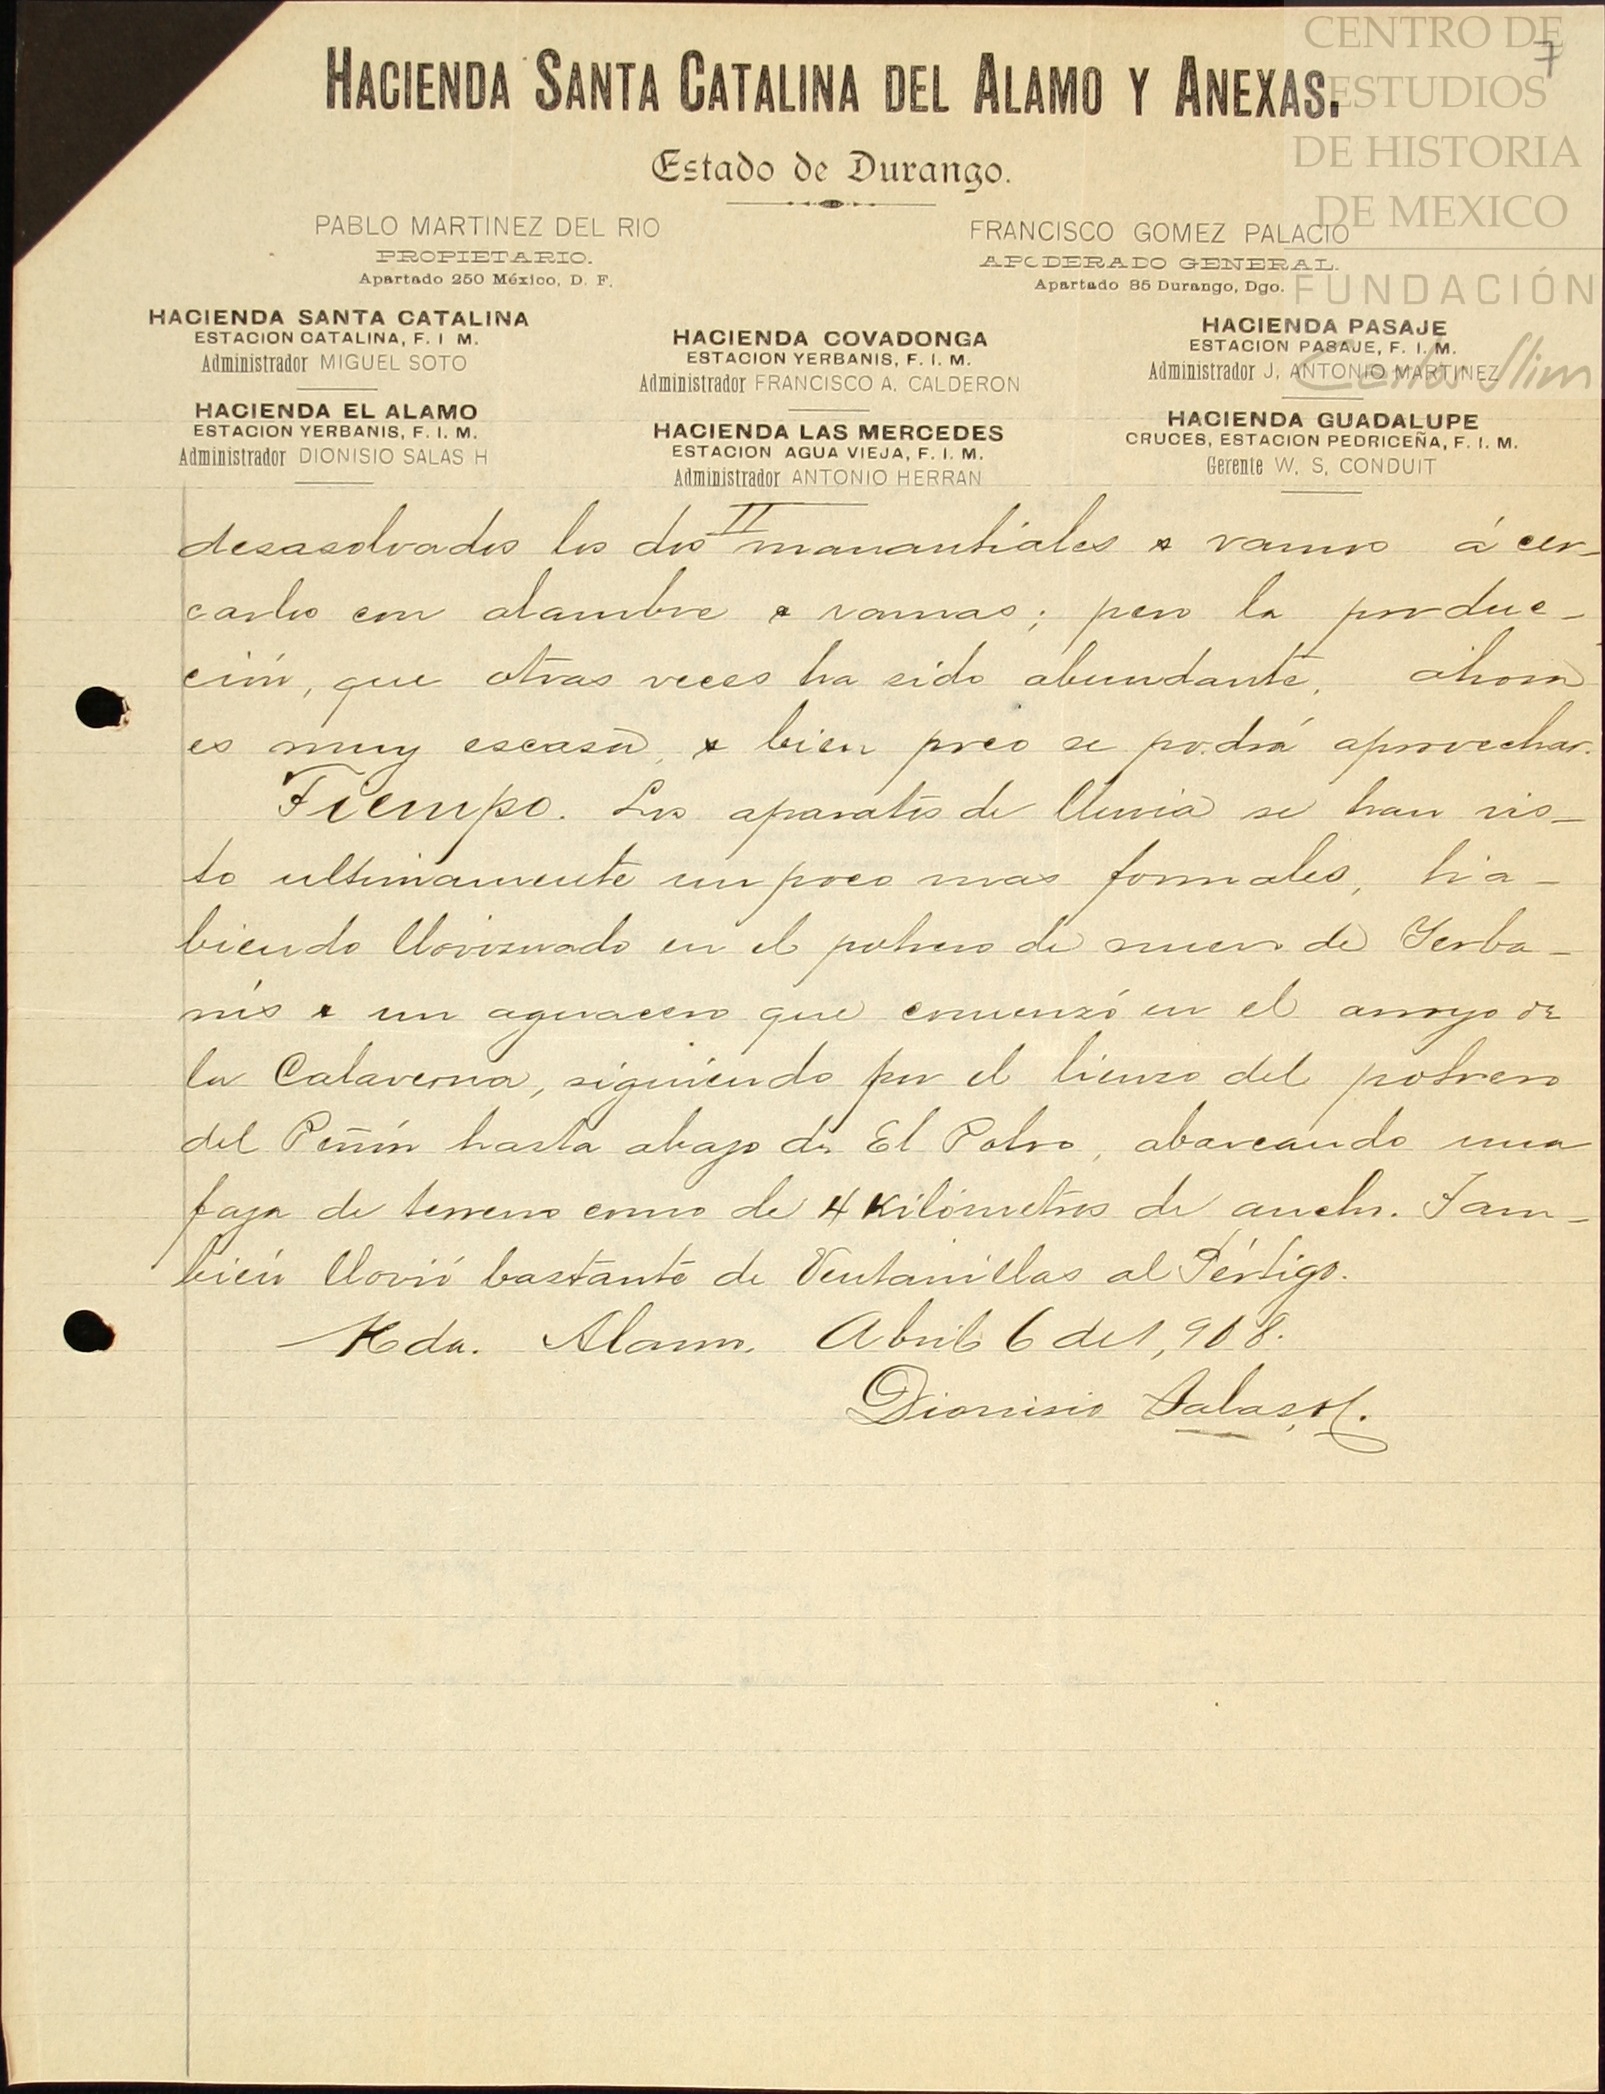 CENTRO DE
ESTUDIOS
DE HISTORIA
DE MEXICO
FUNDACIÓN
Carlos Slim
7
HACIENDA SANTA CATALINA DEL ALAMO Y ANEXAS.
Estado de Durango.
PABLO MARTINEZ DEL RIO
PROPIETARIO.
Apartado 250 México, D. F.
FRANCISCO GOMEZ PALACIO
APODERADO GENERAL.
Apartado 85 Durango, Dgo.
HACIENDA SANTA CATALINA
ESTACION CATALINA, F. I M.
Administrador MIGUEL SOTO
HACIENDA EL ALAMO
ESTACION YERBANIS, F. I. M.
Administrador DIONISIO SALAS H
HACIENDA COVADONGA
ESTACION YERBANIS, F. I. M.
Administrador FRANCISCO A. CALDERON
HACIENDA LAS MERCEDES
ESTACION AGUA VIEJA, F. I. M.
Administrador ANTONIO HERRAN
HACIENDA PASAJE
ESTACION PASAJE, F. I. M.
Administrador J, ANTONIO MARTINEZ
HACIENDA GUADALUPE
CRUCES, ESTACION PEDRICEÑA, F. I. M.
Gerente W. S. CONDUIT
II
desasolvados los dos manantiales & vamos á cer-
carlos con alambre & ramas; pero la produc-
ción, que otras veces ha sido abundante, ahora
es muy escasa, & bien poco se podrá aprovechar.
Tiempo. Los aparatos de lluvia se han vis-
to ultimamente un poco mas formales, ha-
biendo lloviznado en el potrero de nuevo de Yerba-
nis & un aguacero que comenzó en el arroyo de
la Calaverna, siguiendo por el lienzo del potrero
del Peñón hasta abajo de El Polvo, abarcando una
faja de terreno como de 4 kilómetros de ancho. Tam-
bién llovió bastante de Ventanillas al Pértigo.
Hda. Alamo. Abril 6 de 1,908.
Dionisio Salas, H.